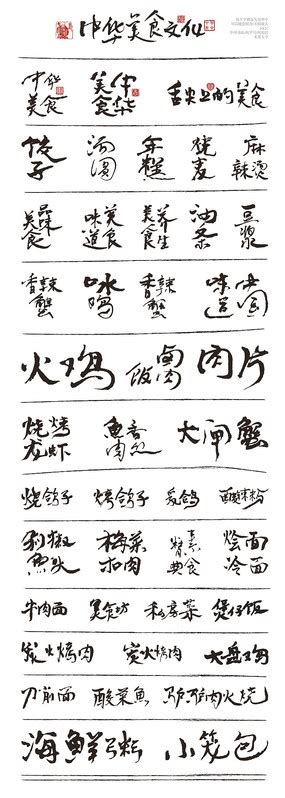 中华美食文化
中华美食 美食中华 舌尖上的美食
饺子 汤圆 年糕 烧麦 麻辣烫
美食品味 味道美食 美食养生 油条 豆浆
香辣蟹 冰鸡 香辣蟹 味道中国
火鸡 卤肉饭 肉片
烧烤龙虾 鱼香肉丝 大闸蟹
烧鸽子 烤鸽子 乳鸽 酸辣粉
剁椒鱼头 梅菜扣肉 素食贤典 烩面冷面
牛肉面 美食坊 私房菜 煲仔饭
炭火烤肉 炭火烤肉 大盘鸡
刀削面 酸菜鱼 驴肉火烧
海鲜粥 小笼包